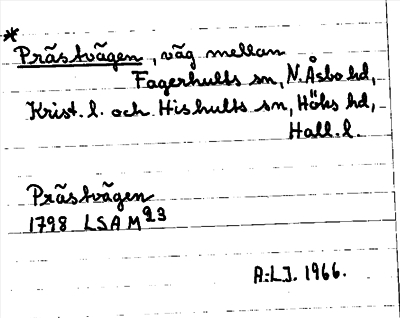 *
Prästvägen, väg mellan
Fagerhults sn, N. Åsbo hd,
Krist. l. och Hishults sn, Höks hd,
Hall. l.
Prästvägen
1798 LSA M 23
A:LJ. 1966.